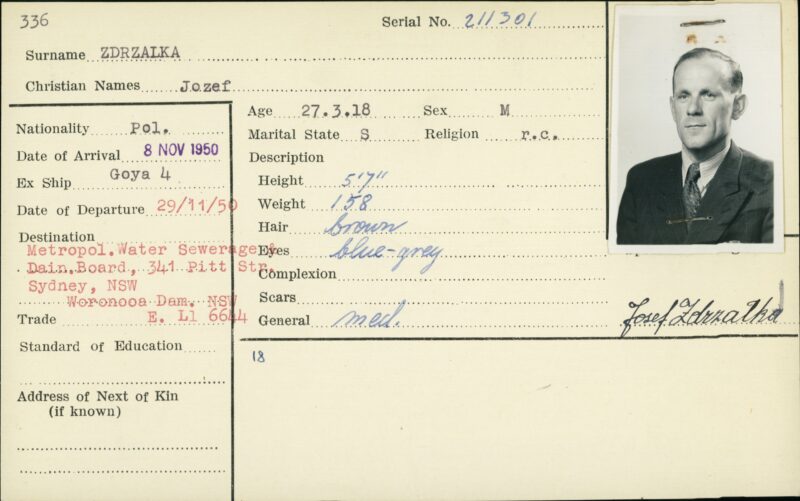 336
Serial No. 211301
Surname ZDRZALKA
Christian Names Jozef
Nationality Pol.
Date of Arrival 8 NOV 1950
Ex Ship Goya 4
Date of Departure 29/11/50
Destination
Metropol.Water Sewerage&
Dain.Board, 341 Pitt Str.
Sydney, NSW
Woronooa Dam. NSW
Trade E. Ll 6644
Standard of Education
Address of Next of Kin
(if known)
Age 27.3.18 Sex M
Marital State S Religion r.c.
Description
Height 5'7"
Weight 158
Hair brown
Eyes blue-grey
Complexion
Scars
General med.
Josef Zdrzałka
18